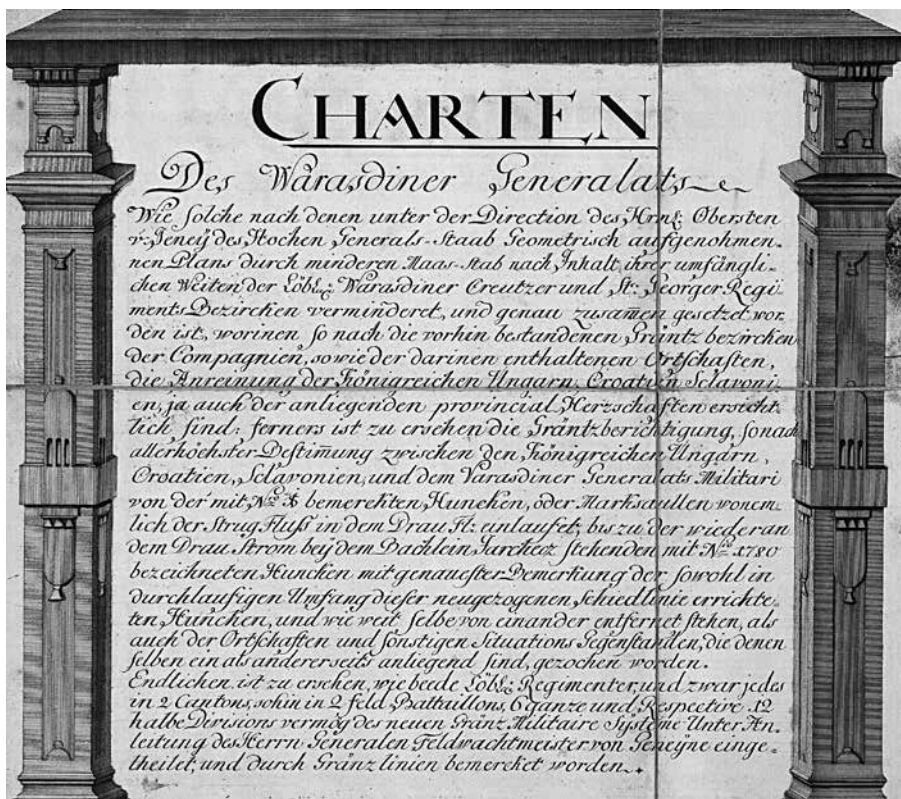 CHARTEN
Des Warasdiner Generalats
Wie solche nach denen unter der Direction des Hrn: Obersten
v: Jeneÿ des Hochen Generals-Staab Geometrisch aufgenohme-
nen Plans durch minderen Maas-stab nach Inhalt ihrer umfängli-
chen Weiten der Löbl: Warasdiner Creutzer und St: Georger Regi-
ments Bezircken verminderet, und genau zusam̄en gesetzet wor-
den ist, worinen so nach die vorhin bestandenen Gräntz bezircken
der Compagnien, sowie der darinen enthaltenen Ortschaften,
die Anreinung der Königreichen Ungarn, Croatien Sclavoni-
en, ja auch der anliegenden provincial Herrschaften ersicht-
lich sind: ferners ist zu ersehen die Gräntzberichtigung, sonach
allerhöchster Bestim̄ung zwischen den Königreichen Ungarn,
Croatien, Sclavonien, und dem Varasdiner Generalats Militari
von der mit N: 1 bemerckten Huncken, oder Marksäullen wonem-
lich der Strug Fluss in dem Drau Fl: einlaufet, bis zu der wiederan
dem Drau Strom beÿ dem Bächlein stehenden mit N: 1780
bezeichneten Huncken mit genauester Bemerkung der sowohl in
durchlaufigen Umfang dieser neugezogenen schiedlinie errichte-
ten Huncken, und wie weit selbe von einander entfernet stehen, als
auch der Ortschaften und sonstigen Situations Gegenständen, die denen
selben ein als andererseits anliegend sind, gezochen worden.
Endlichen ist zu ersehen, wie beede Löbl: Regimenter, und zwar jedes
in 2 Cantons, sohin in 2 feld Battaillons, 6 ganze und Respective 12
halbe Divisions vermög des neuen Gränz Militaire Systeme Unter An-
leitung des Herrn Generalen Feldwachtmeister von Geneyne einge-
theilet, und durch Gränz linien bemercket worden.